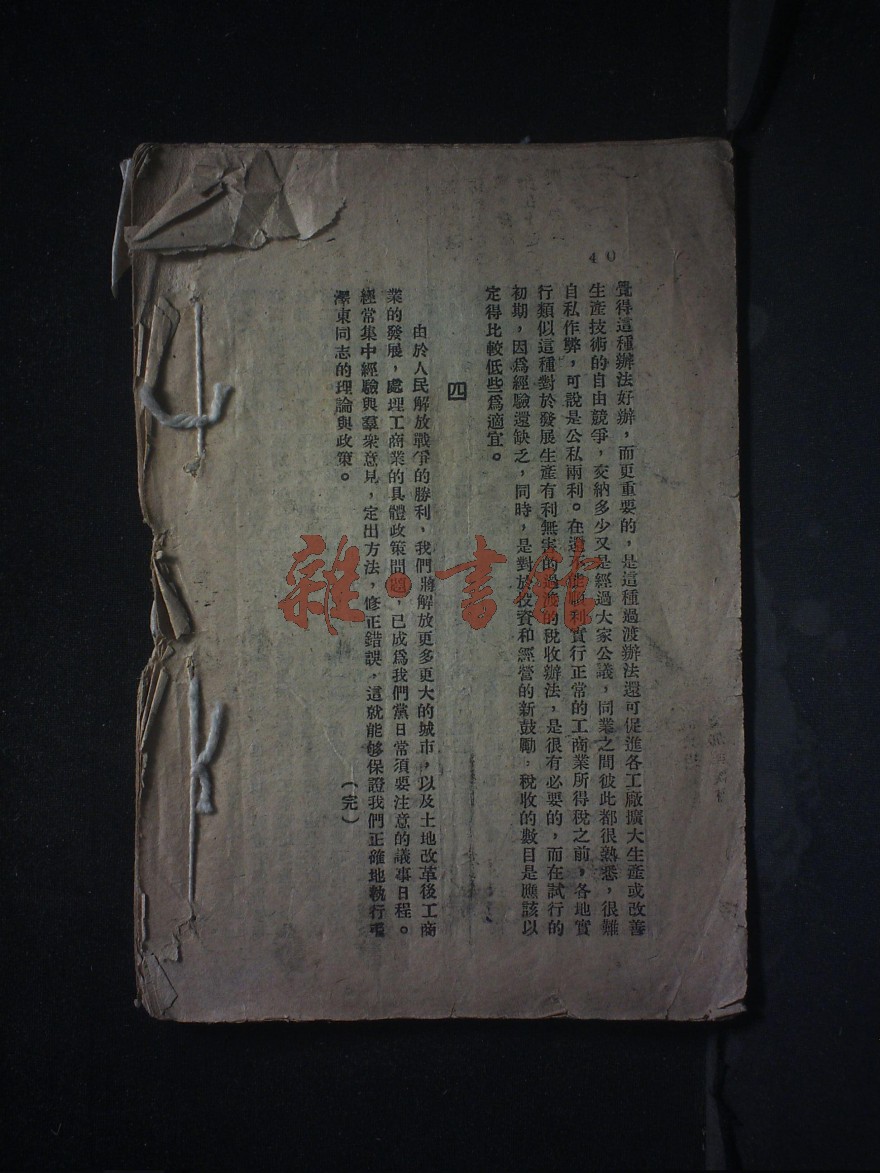 40
覺得這種辦法好辦，而更重要的，是這種過渡辦法還可促進各工廠擴大生產或改善
生產技術的自由競爭，交納多少又是經過大家公議，同業之間彼此都很熟悉，很難
自私作弊，可說是公私兩利。在還不能順利實行正常的工商業所得稅之前，各地實
行類似這種對於發展生產有利無害的過渡的稅收辦法，是很有必要的，而在試行的
初期，因爲經驗還缺乏，同時，是對於投資和經營的新鼓勵，稅收的數目是應該以
定得比較低些爲適宜。
四
由於人民解放戰爭的勝利，我們將解放更多更大的城市，以及土地改革後工商
業的發展，處理工商業的具體政策問題，已成爲我們黨日常須要注意的議事日程。
經常集中經驗與羣衆意見，定出方法，修正錯誤，這就能够保證我們正確地執行毛
澤東同志的理論與政策。
（完）
雜·書館